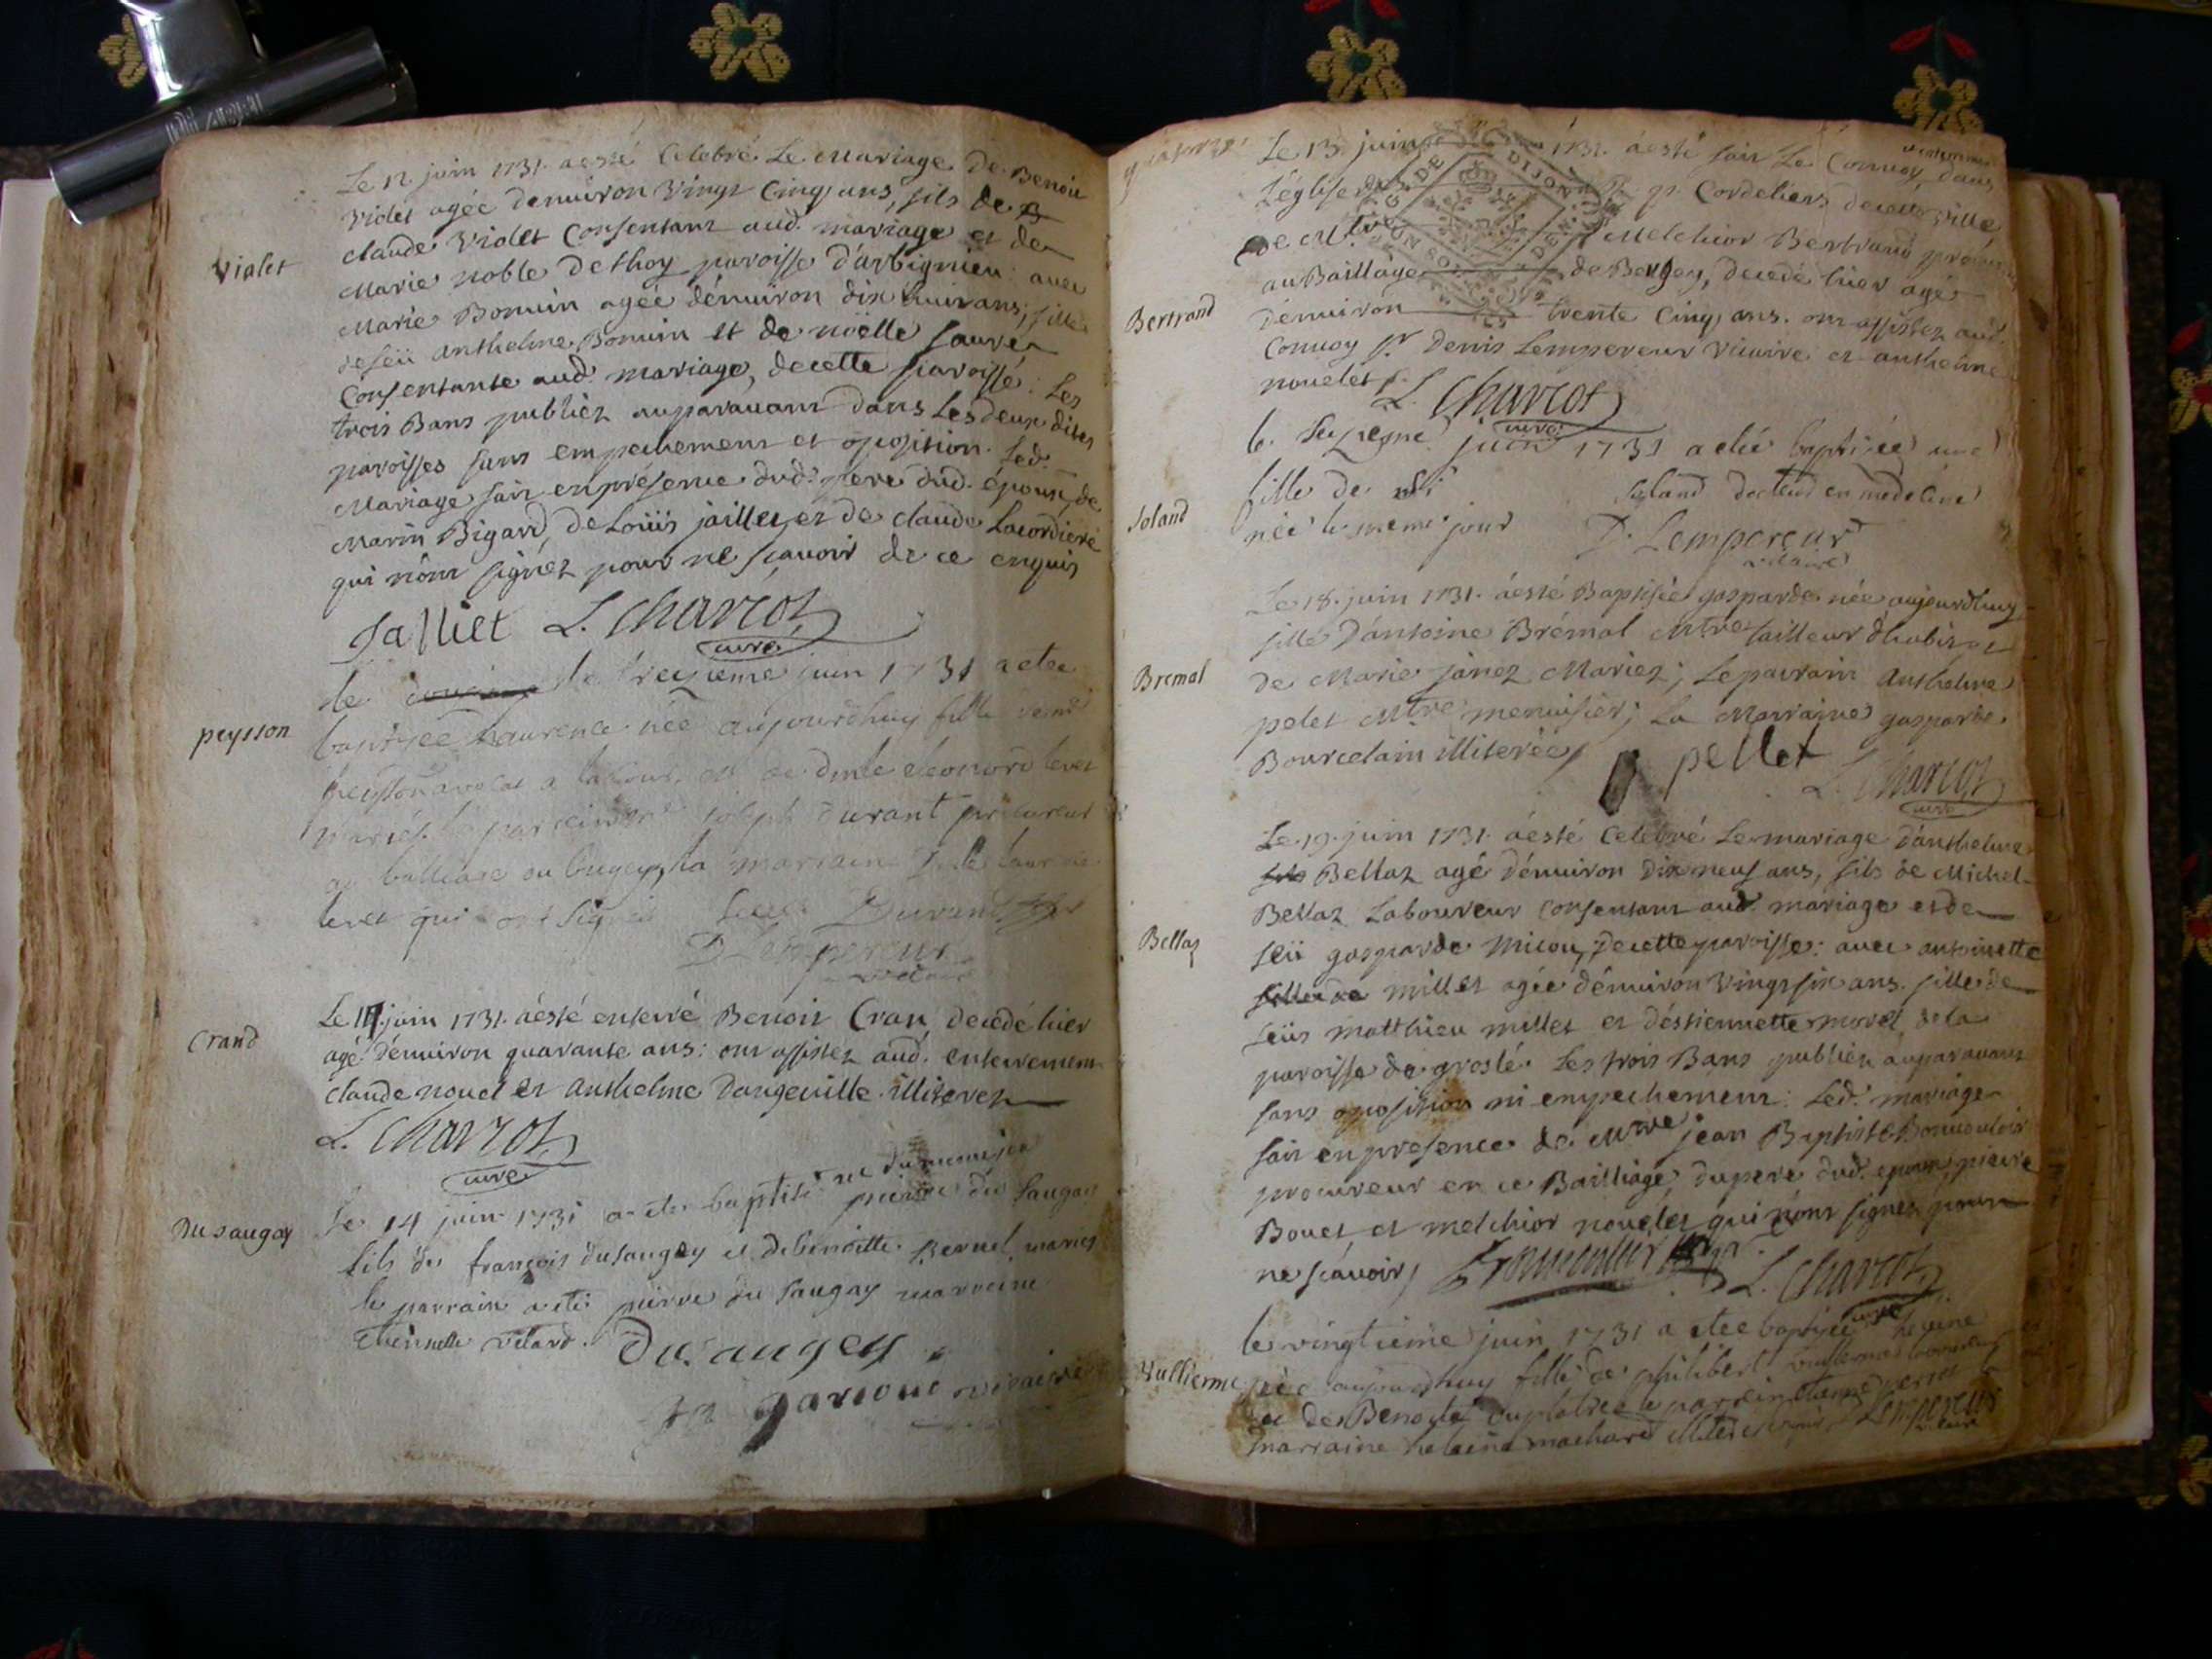 Le 12 juin 1731. aesté Celebré Le Mariage De Benoit
Violet agée denuiron Vingt Cinq ans, fils de
claude Violet Consentant aud. mariage et de
Violet
Marie noble Dethoy paroisse d'arbignieu: avec
Marie Bonuin agée dénuiron dix huit ans; fille
defeü anthelme Bonuin et de noëlle faure
Consentante aud. mariage, decette paroisse: Les
trois Bans publiez auparauant dans Les deux dites
paroisses sans empechement et oposition. Led.
Mariage fait en présence dud. pere dud. époux, de
Marin Bigard, de Loüis jaillet, et de claude Lacordiere
qui n'ont signéz pour ne scauoir de ce enquis
Jalliet L. Charcot
curé
le treizieme juin 1731 a etee
peysson
baptisée Laurence née aujourdhuy fille de mr
peysson avocat a la cour, et de dmle eleonord levet
mariés le parrein mr joseph durant procureur
au balliage du bugey, la marraine dlle laurence
levet qui ont signés Levet Durand
D Lempereur
vicaire
Le 14 juin 1731. aésté enterré Benoit Cran, decedé hier
Crand
agé dénuiron quarante ans: ont assistez aud. enterrement
claude nouel et anthelme Dangeuille illiterez
L. Charcot
curé
né du meme jour
Le 14 juin 1731 a ete baptisé pierre du Saugay
Dusaugay
fils de françois dusaugey et de benoitte Bernel mariés
le parrain a eté pierre du Saugay marreine
Etiennette vétard. Dusaugey
vicaire
Le 13. juin 1731. aesté fait Le Conuoy, dans
L'église des pp. Cordeliers decette ville
de Mtre Melchior Bertrand procureur
au Baillage de Bugey, decedé hier agé
Bertrand
dénuiron trente Cinq ans. ont assistez aud.
Conuoy Sr Denis Lempereur Vicaire et anthelme
nouelet. L. Charcot
curé
le juin 1731 a eté baptisée une
fille de Mr Soland docteur en medecine
Soland
née le meme jour D. Lempereur
vicaire
Le 18. juin 1731. áesté Baptisée gasparde née aujourdhuy
fille D'antoine Brémal Mtre tailleur dhabits et
Bremal
de Marie janez Mariez; Le parrain Anthelme
pelet Mtre menuisier; La Marraine gasparde
Bourcelain illiterée
pellet
L. Charcot
curé
Le 19. juin 1731. áesté Celebré Le mariage D'anthelme
fils Bellaz agé dénuiron Dix neuf ans, fils de Michel
Bellaz Laboureur consentant aud. mariage et de
Bellaz
feü gasparde Micou, decette paroisse: avec antoinette
fille de millet agée dénuiron Vingt six ans. fille de
feüs matthieu millet et déstiennette morel de la
paroisse de groslé. Les trois Bans publiez áuparauant
sans oposition ni empechement: Led. mariage
fait en presence de Mtre jean Baptiste Bonuouloir
procureur en ce Bailliage, du pere dud. epoux, pierre
Bouet et melchior nouelet qui n'ont signez pour
ne scauoir L. Charcot
curé
le vingtieme juin 1731 a etee baptisée helene
Vullierme
née aujourdhuy fille de philibert vullierme
et de Benoite le parrein etienne perrot la
marraine helaine machard Lempereur
vicaire